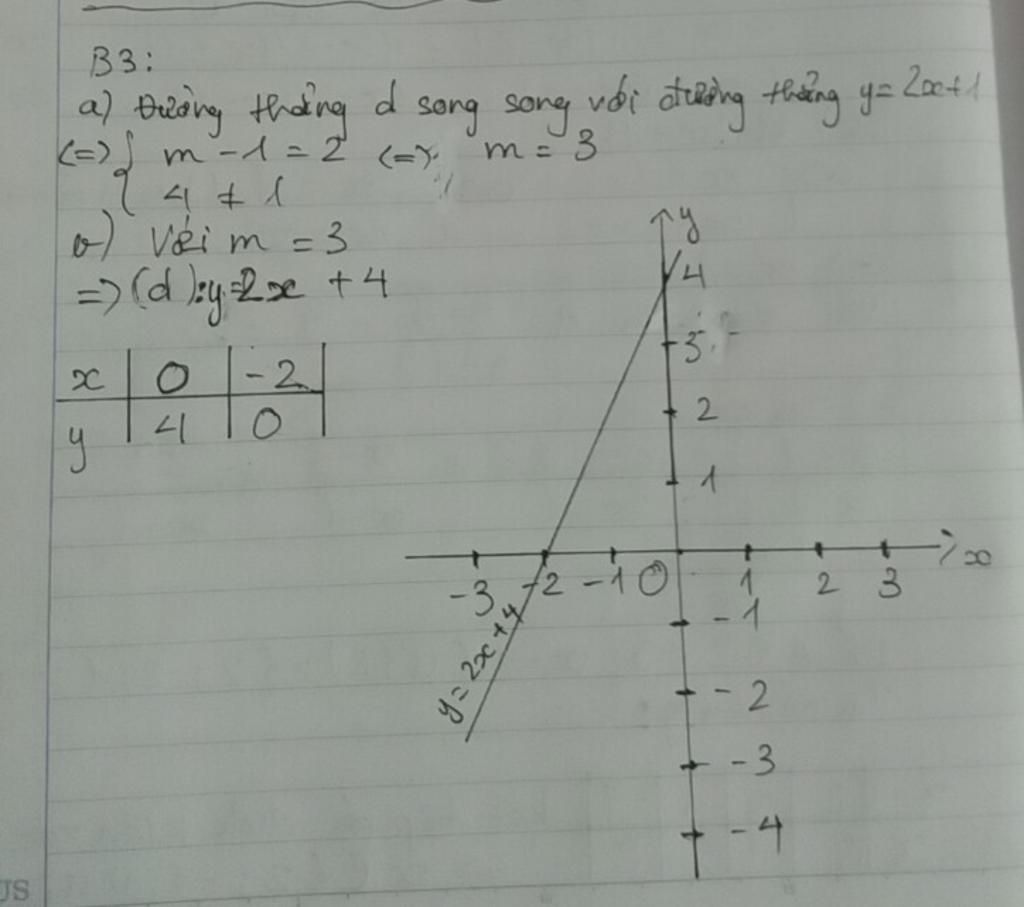 B3:
a) Đường thẳng d song song với đường thẳng y=2x+1
<=> { m - 1 = 2 <=> m = 3
4 ≠ 1
b) Với m = 3
=> (d): y=2x + 4
x | 0 | -2
y | 4 | 0
y
4
3
2
1
-3 -2 -1 O 1 2 3 x
-1
-2
-3
-4
y=2x+4
JS